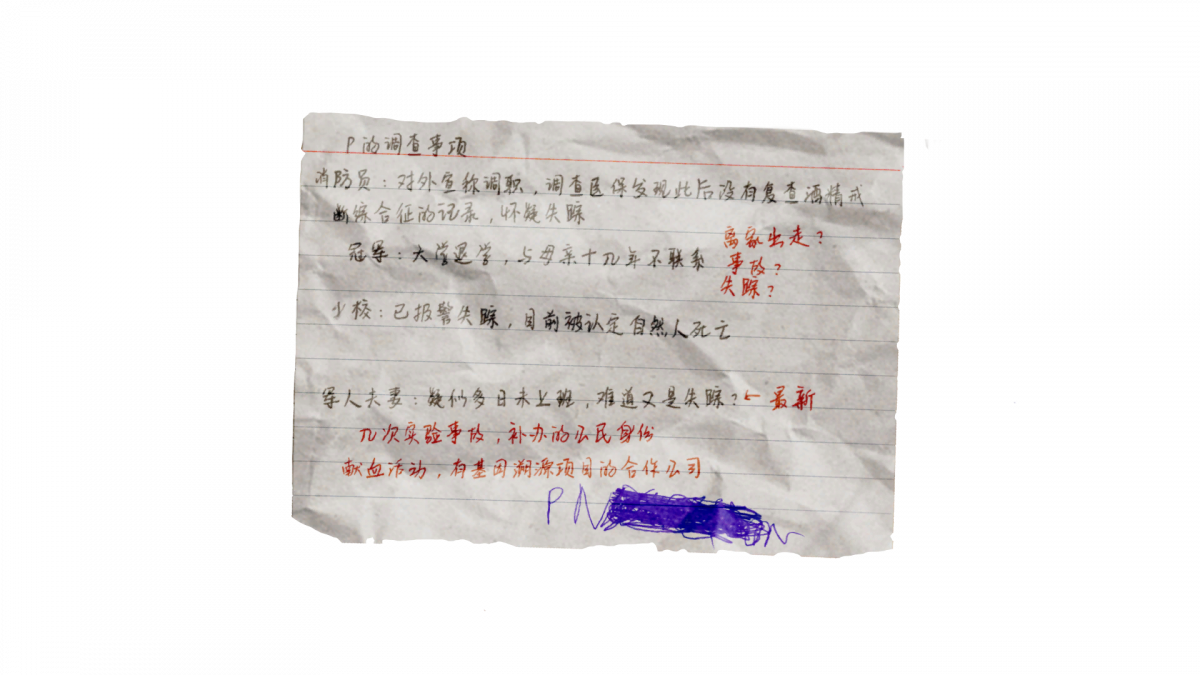 P的调查事项
消防员：对外宣称调职，调查医保发现此后没有复查酒精戒
断综合征的记录，怀疑失踪
离家出走？
冠军：大学退学，与母亲十几年不联系
事故？
失踪？
少校：已报警失踪，目前被认定自然人死亡
军人夫妻：疑似多日未上班，难道又是失踪？← 最新
几次实验事故，补办的公民身份
献血活动，有基因溯源项目的合作公司
P N